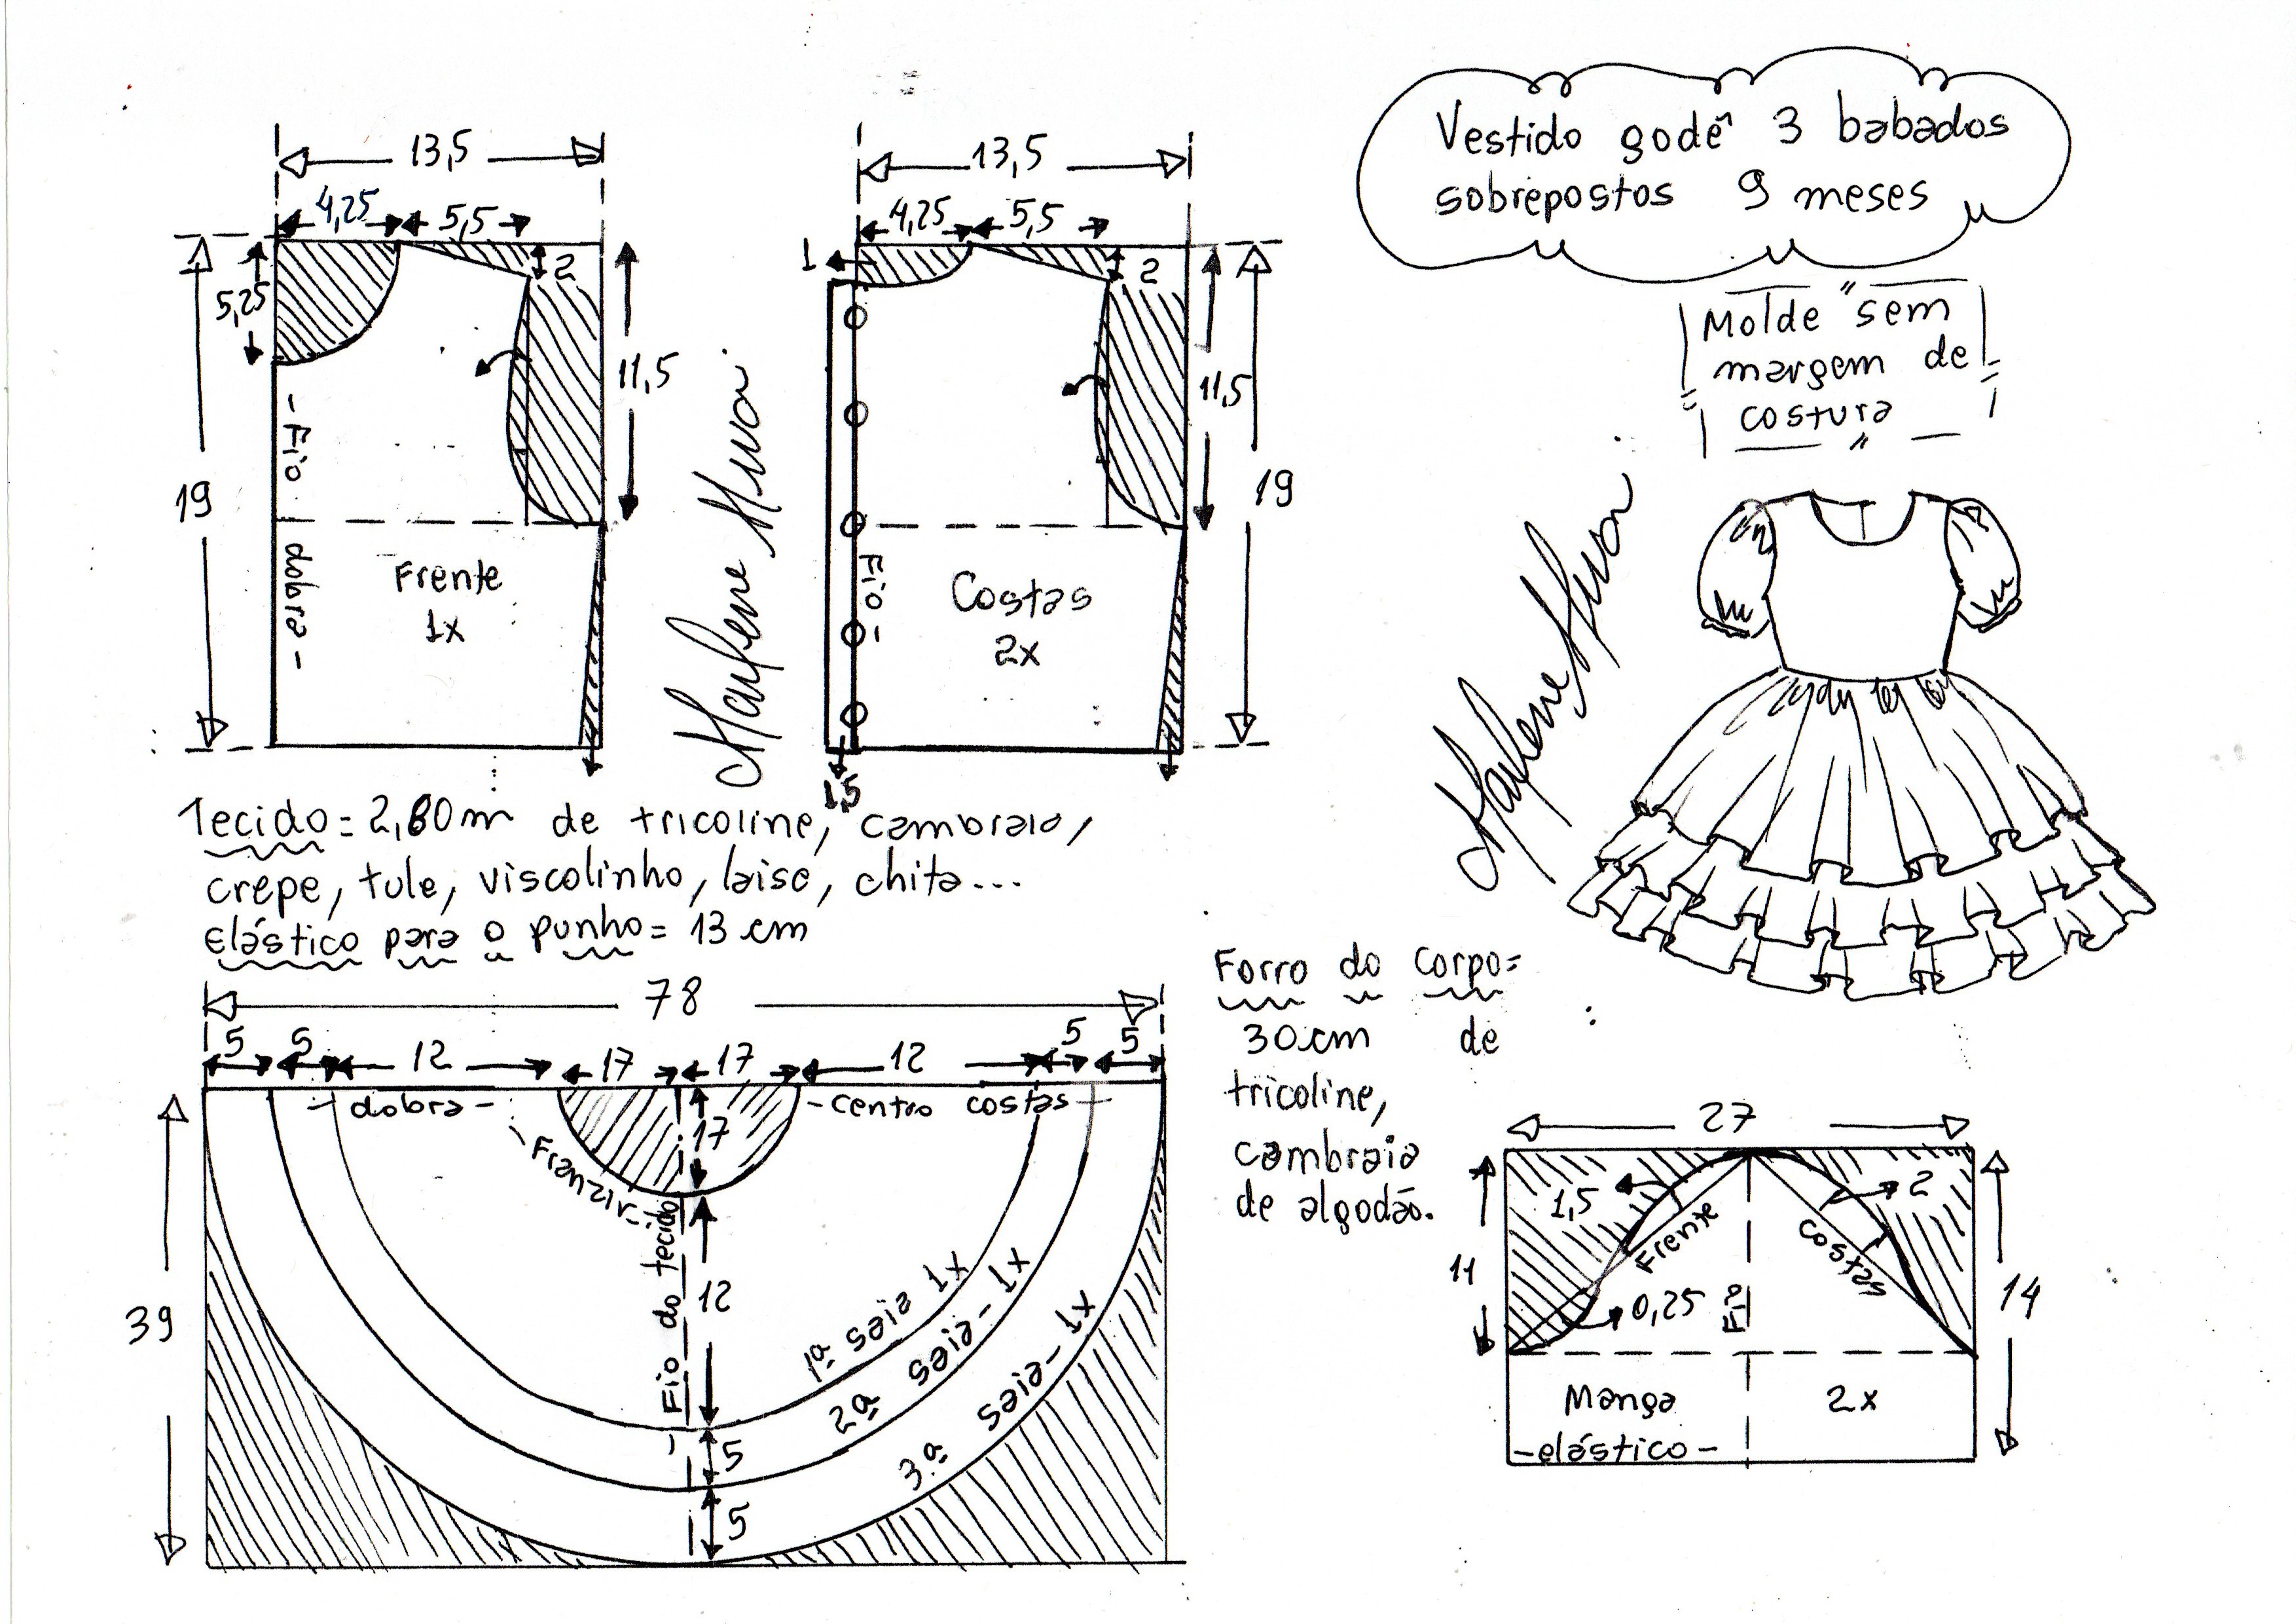 Vestido godê 3 babados
sobrepostos 9 meses
Molde "sem
margem de
costura"
13,5
4,25
5,5
2
5,25
11,5
19
- Fio dobra -
Frente
1x
Marlene Mukai
13,5
4,25
5,5
1
2
11,5
19
Fio -
Costas
2x
1,5
Marlene Mukai
Tecido = 2,80m de tricoline, cambraia,
crepe, tule, viscolinho, laise, chita...
elástico para o punho = 13 cm
78
5
5
12
17
17
12
5
5
- dobra -
- centro costas -
17
- Franzir -
- Fio do tecido
12
5
5
39
1ª saia 1x
2ª saia - 1x
3ª saia - 1x
Forro do corpo=
30cm de
tricoline,
cambraia
de algodão.
27
1,5
2
Frente
Costas
11
0,25
Fio
14
Manga
2x
- elástico -